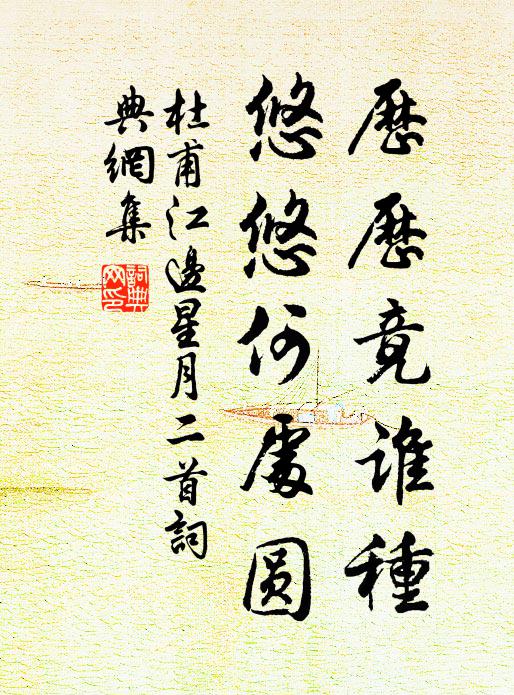 歷歷竟誰種
悠悠何處圓
杜甫江邊星月二首詞
典網集
詞典
网印